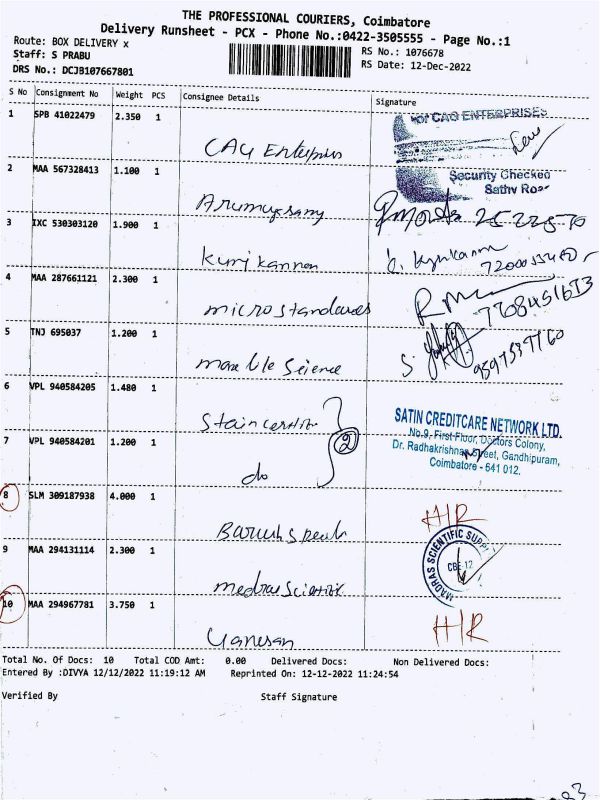 THE PROFESSIONAL COURIERS, Coimbatore
Delivery Runsheet - PCX - Phone No.:0422-3505555 - Page No.:1
Route: BOX DELIVERY x
Staff: S PRABU
DRS No.: DCJB107667801
RS No.: 1076678
RS Date: 12-Dec-2022
S No Consignment No Weight PCS Consignee Details Signature
1 SPB 41022479 2.350 1
for CAG ENTERPRISES
CAG Enterprises
Security Checked
2 MAA 567328413 1.100 1
Arumugsamy
3 IXC 530303120 1.900 1
Kurijkannan
4 MAA 287661121 2.300 1
microstandards
5 TNJ 695037 1.200 1
marble Science
9597537760
6 VPL 940584205 1.480 1
2
SATIN CREDITCARE NETWORK LTD.
No.9, First Floor, Doctors Colony,
Dr. Radhakrishnan Street, Gandhipuram,
Coimbatore - 641 012.
7 VPL 940584201 1.200 1
do
8 SLM 309187938 4.000 1
H/R
9 MAA 294131114 2.300 1
MADRAS SCIENTIFIC SUPPL
CBE-12
10 MAA 294967781 3.750 1
Ganesan
H/R
Total No. Of Docs: 10 Total COD Amt: 0.00 Delivered Docs: Non Delivered Docs:
Entered By :DIVYA 12/12/2022 11:19:12 AM Reprinted On: 12-12-2022 11:24:54
Verified By Staff Signature